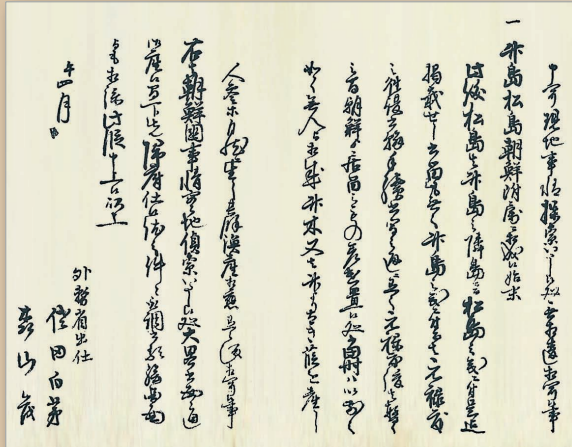 一 竹島松島朝鮮附属ニ相成候始末
此儀松島ハ竹島之隣島ニテ松島之儀ニ付是迄
掲載セシ書留モ無之竹島之儀ニ付テハ元禄度
之往復書翰手続書写之通ニ有之元禄度後ハ暫ク
之間朝鮮ヨリ居留之モノ差遣置候処当時ハ以前ノ
如ク無人ト相成竹木又ハ竹ヨリ太キ葭ヲ産シ
人参等自然ニ生シ其余漁産モ相応ニ有之趣相聞候事
右ハ朝鮮国事情実地偵索イタシ候処大略書面之通
御座候間一ト先帰府仕候依之件々取調書類絵図面
トモ相添此段申上候以上
午四月
外務省出仕
佐田白茅
森山茂